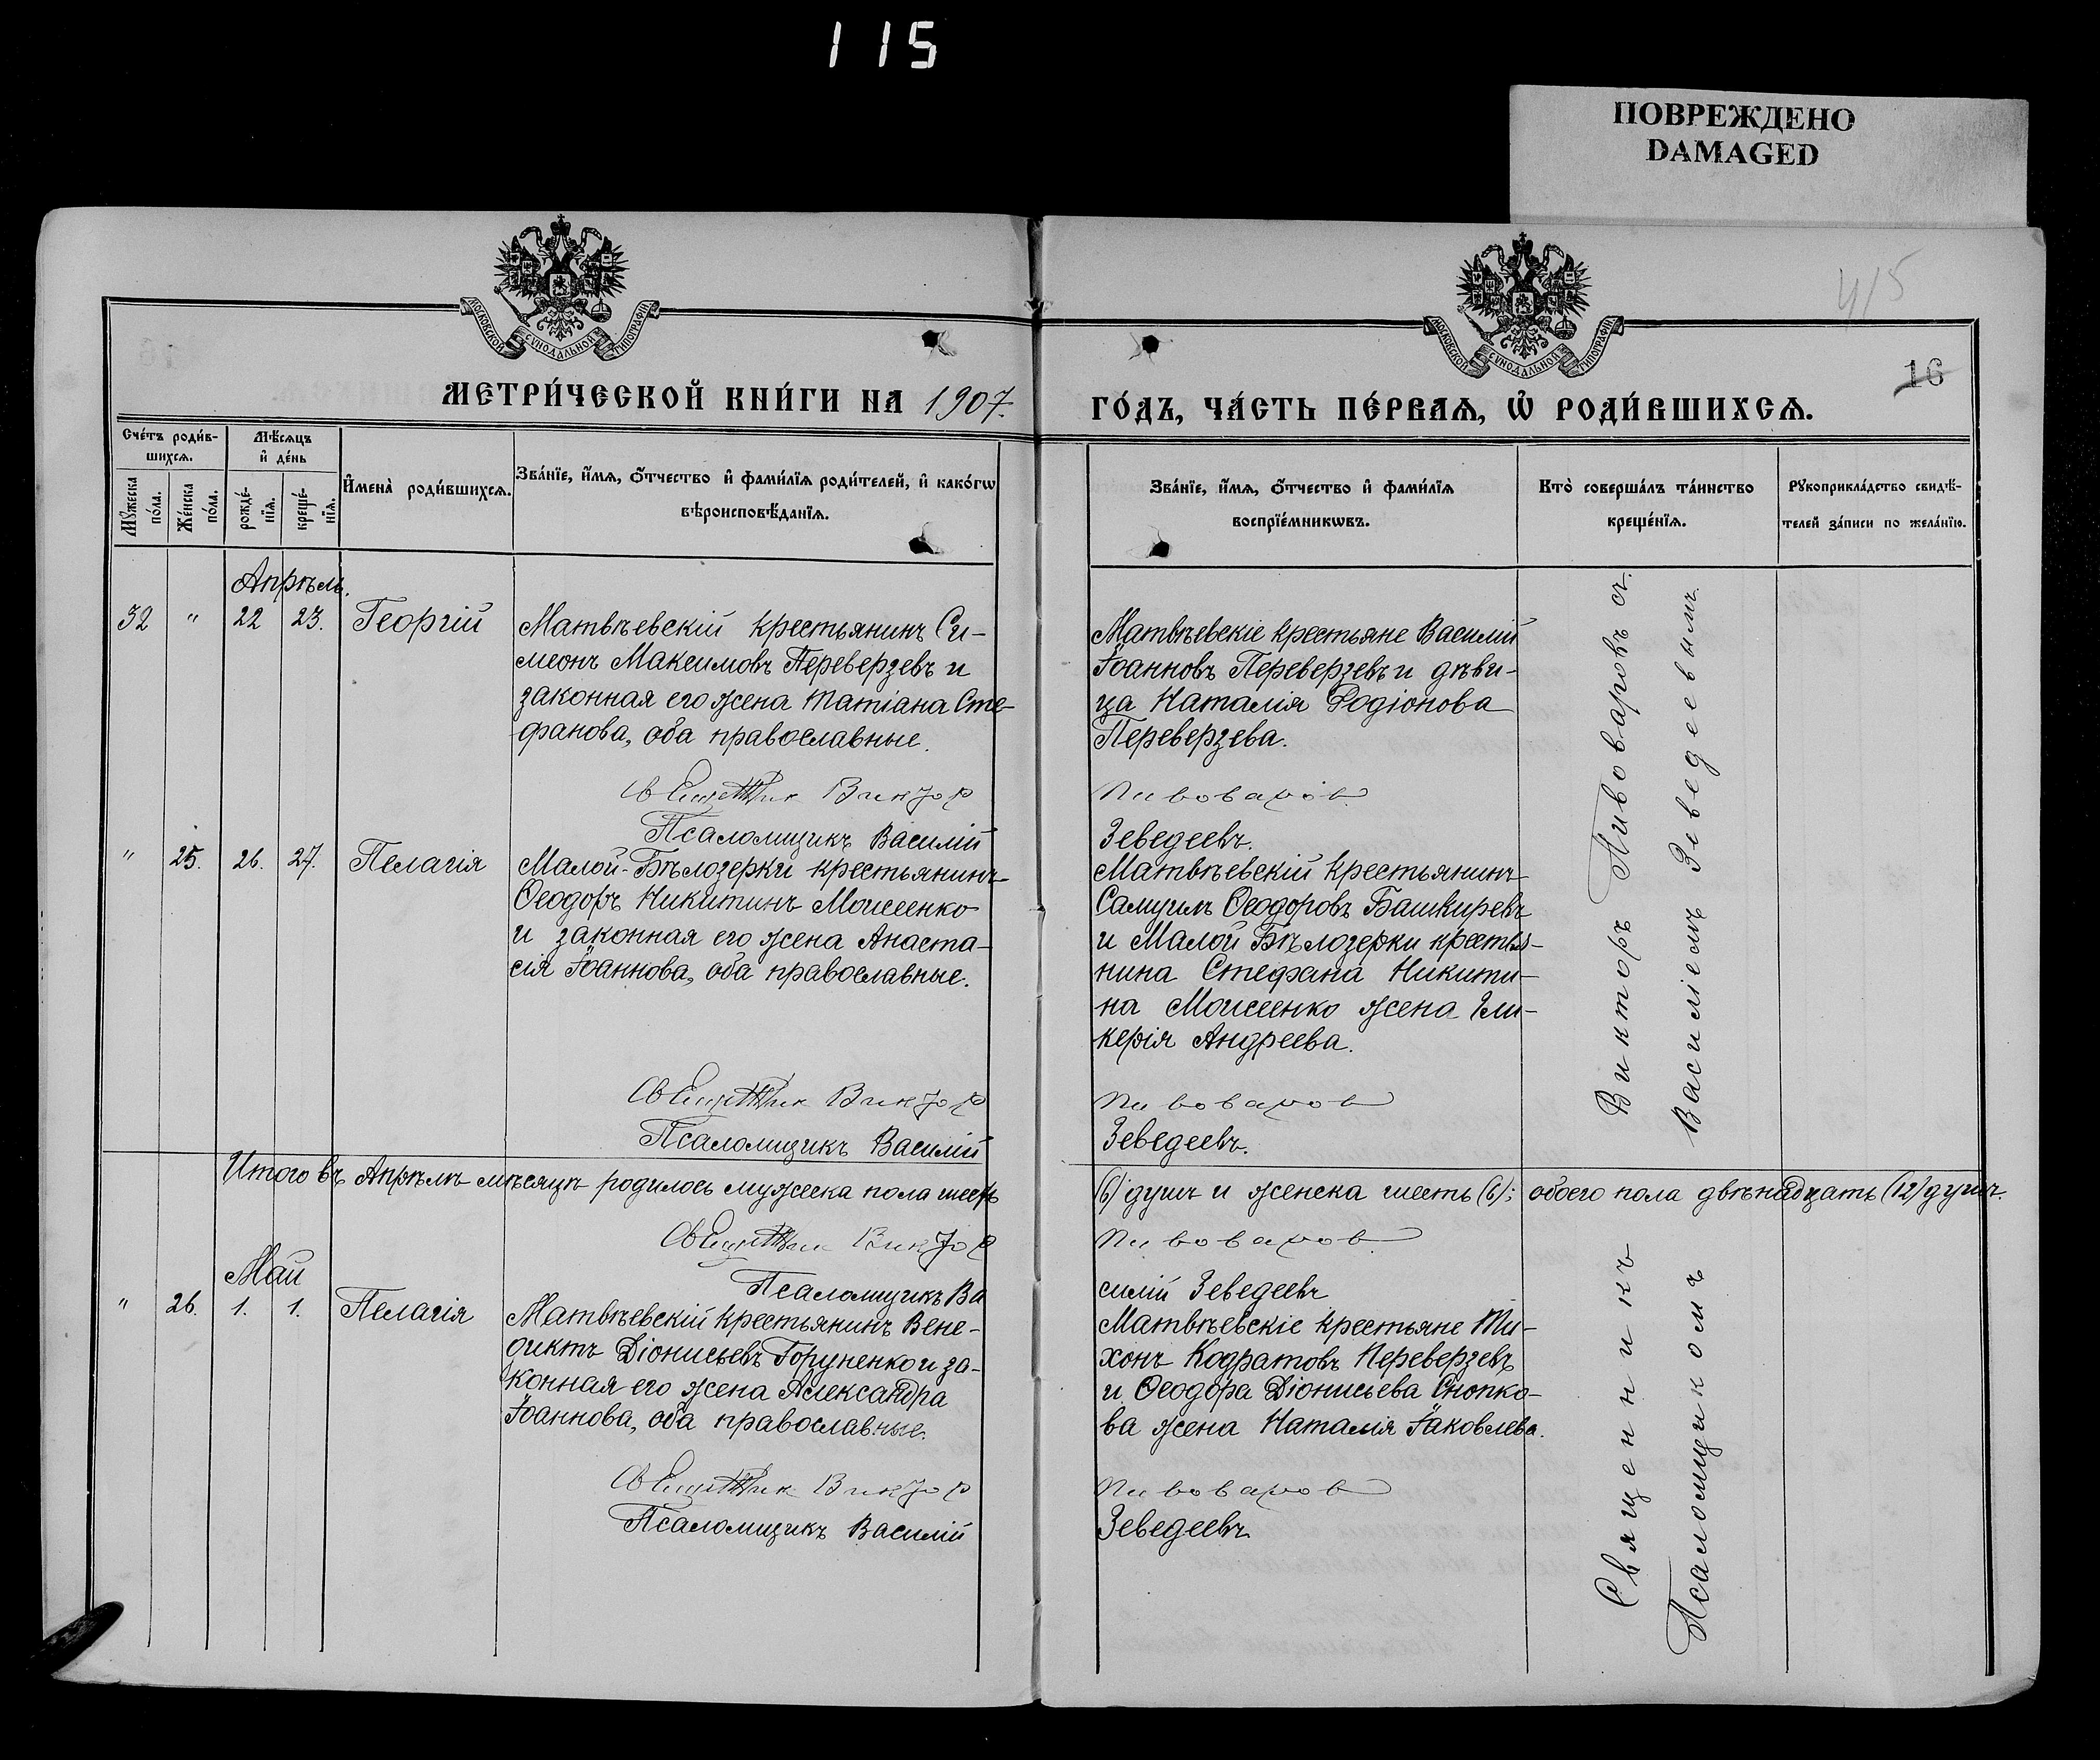 115
ПОВРЕЖДЕНО
DAMAGED
415
16
МОСКОВСКОЙ СѴНОДАЛЬНОЙ ТИПОГРАФІИ
МОСКОВСКОЙ СѴНОДАЛЬНОЙ ТИПОГРАФІИ
МЕТРИ́ЧЕСКОЙ КНИ́ГИ НА 1907.
ГО́ДЪ, ЧА́СТЬ ПЕ́РВАѦ, Ѡ РОДИ́ВШИХСѦ.
Сче́тъ роди́в-
шихсѧ.
Мꙋ́жеска по́ла.
Же́нска по́ла.
Мѣ́сѧцъ
и҆ де́нь
рожде́-
нїѧ.
креще́-
нїѧ.
И҆мена̀ роди́вшихсѧ.
Зва́нїе, и҆́мѧ, ѻ҆́тчество и҆ фами́лїѧ роди́телей, и҆ како́гѡ
вѣроисповѣ́данїѧ.
Зва́нїе, и҆́мѧ, ѻ҆́тчество и҆ фами́лїѧ
воспрїе́мникѡвъ.
Кто̀ соверша́лъ та́инство
креще́нїѧ.
Рꙋкоприкла́дство свидѣ́-
телей за́писи по жела́нїю.
Апрѣль.
32 " 22 23. Георгій
Матвѣевскій крестьянинъ Си-
меонъ Максимовъ Переверзевъ и
законная его жена Татіана Сте-
фанова, оба православные.
Священник Виктор
Псаломщикъ Василій
Матвѣевскіе крестьяне Василій
Іоанновъ Переверзевъ и дѣви-
ца Наталія Родіонова
Переверзева.
Пивоваров
Зеведеевъ.
" 25. 26. 27. Пелагія
Малой-Бѣлозерки крестьянинъ
Ѳеодоръ Никитинъ Моисеенко
и законная его жена Анаста-
сія Іоаннова, оба православные.
Священник Виктор
Псаломщикъ Василій
Матвѣевскій крестьянинъ
Самуилъ Ѳеодоровъ Башкиревъ
и Малой Бѣлозерки крестья-
нина Стефана Никити-
на Моисеенко жена Гли-
керія Андреева.
Пивоваров
Зеведеевъ.
Итого въ Апрѣлѣ мѣсяцѣ родилось мужеска пола шесть (6) душъ и женска шесть (6); обоего пола двѣнадцать (12) душъ.
Священник Виктор Пивоваров
Псаломщикъ Василій Зеведеевъ
Май
" 26. 1. 1. Пелагія
Матвѣевскій крестьянинъ Вене-
диктъ Діонисьевъ Горуненко и за-
конная его жена Александра
Іоаннова, оба православные.
Священник Виктор
Псаломщикъ Василій
Матвѣевскіе крестьяне Ти-
хонъ Кодратовъ Переверзевъ
и Ѳеодора Діонисьева Снопко-
ва жена Наталія Іаковлева.
Пивоваров
Зеведеевъ
Священникъ Викторъ Пивоваровъ съ
Псаломщикомъ Василіемъ Зеведеевымъ.